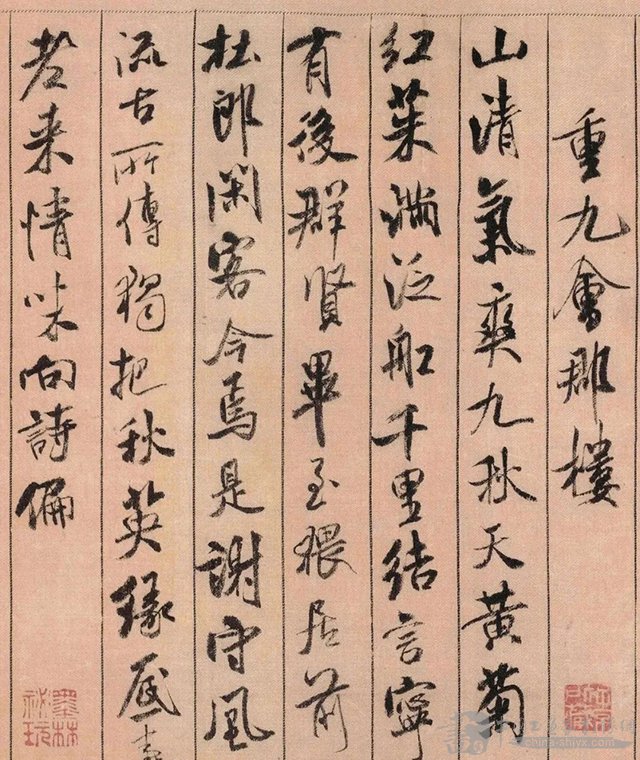 重九會郡樓
山清氣爽九秋天黃菊
紅茱滿泛船千里結言寧
有後群賢畢至猥居前
杜郎閑客今焉是謝守風
流古所傳獨把秋英緣底
老来情味向詩偏